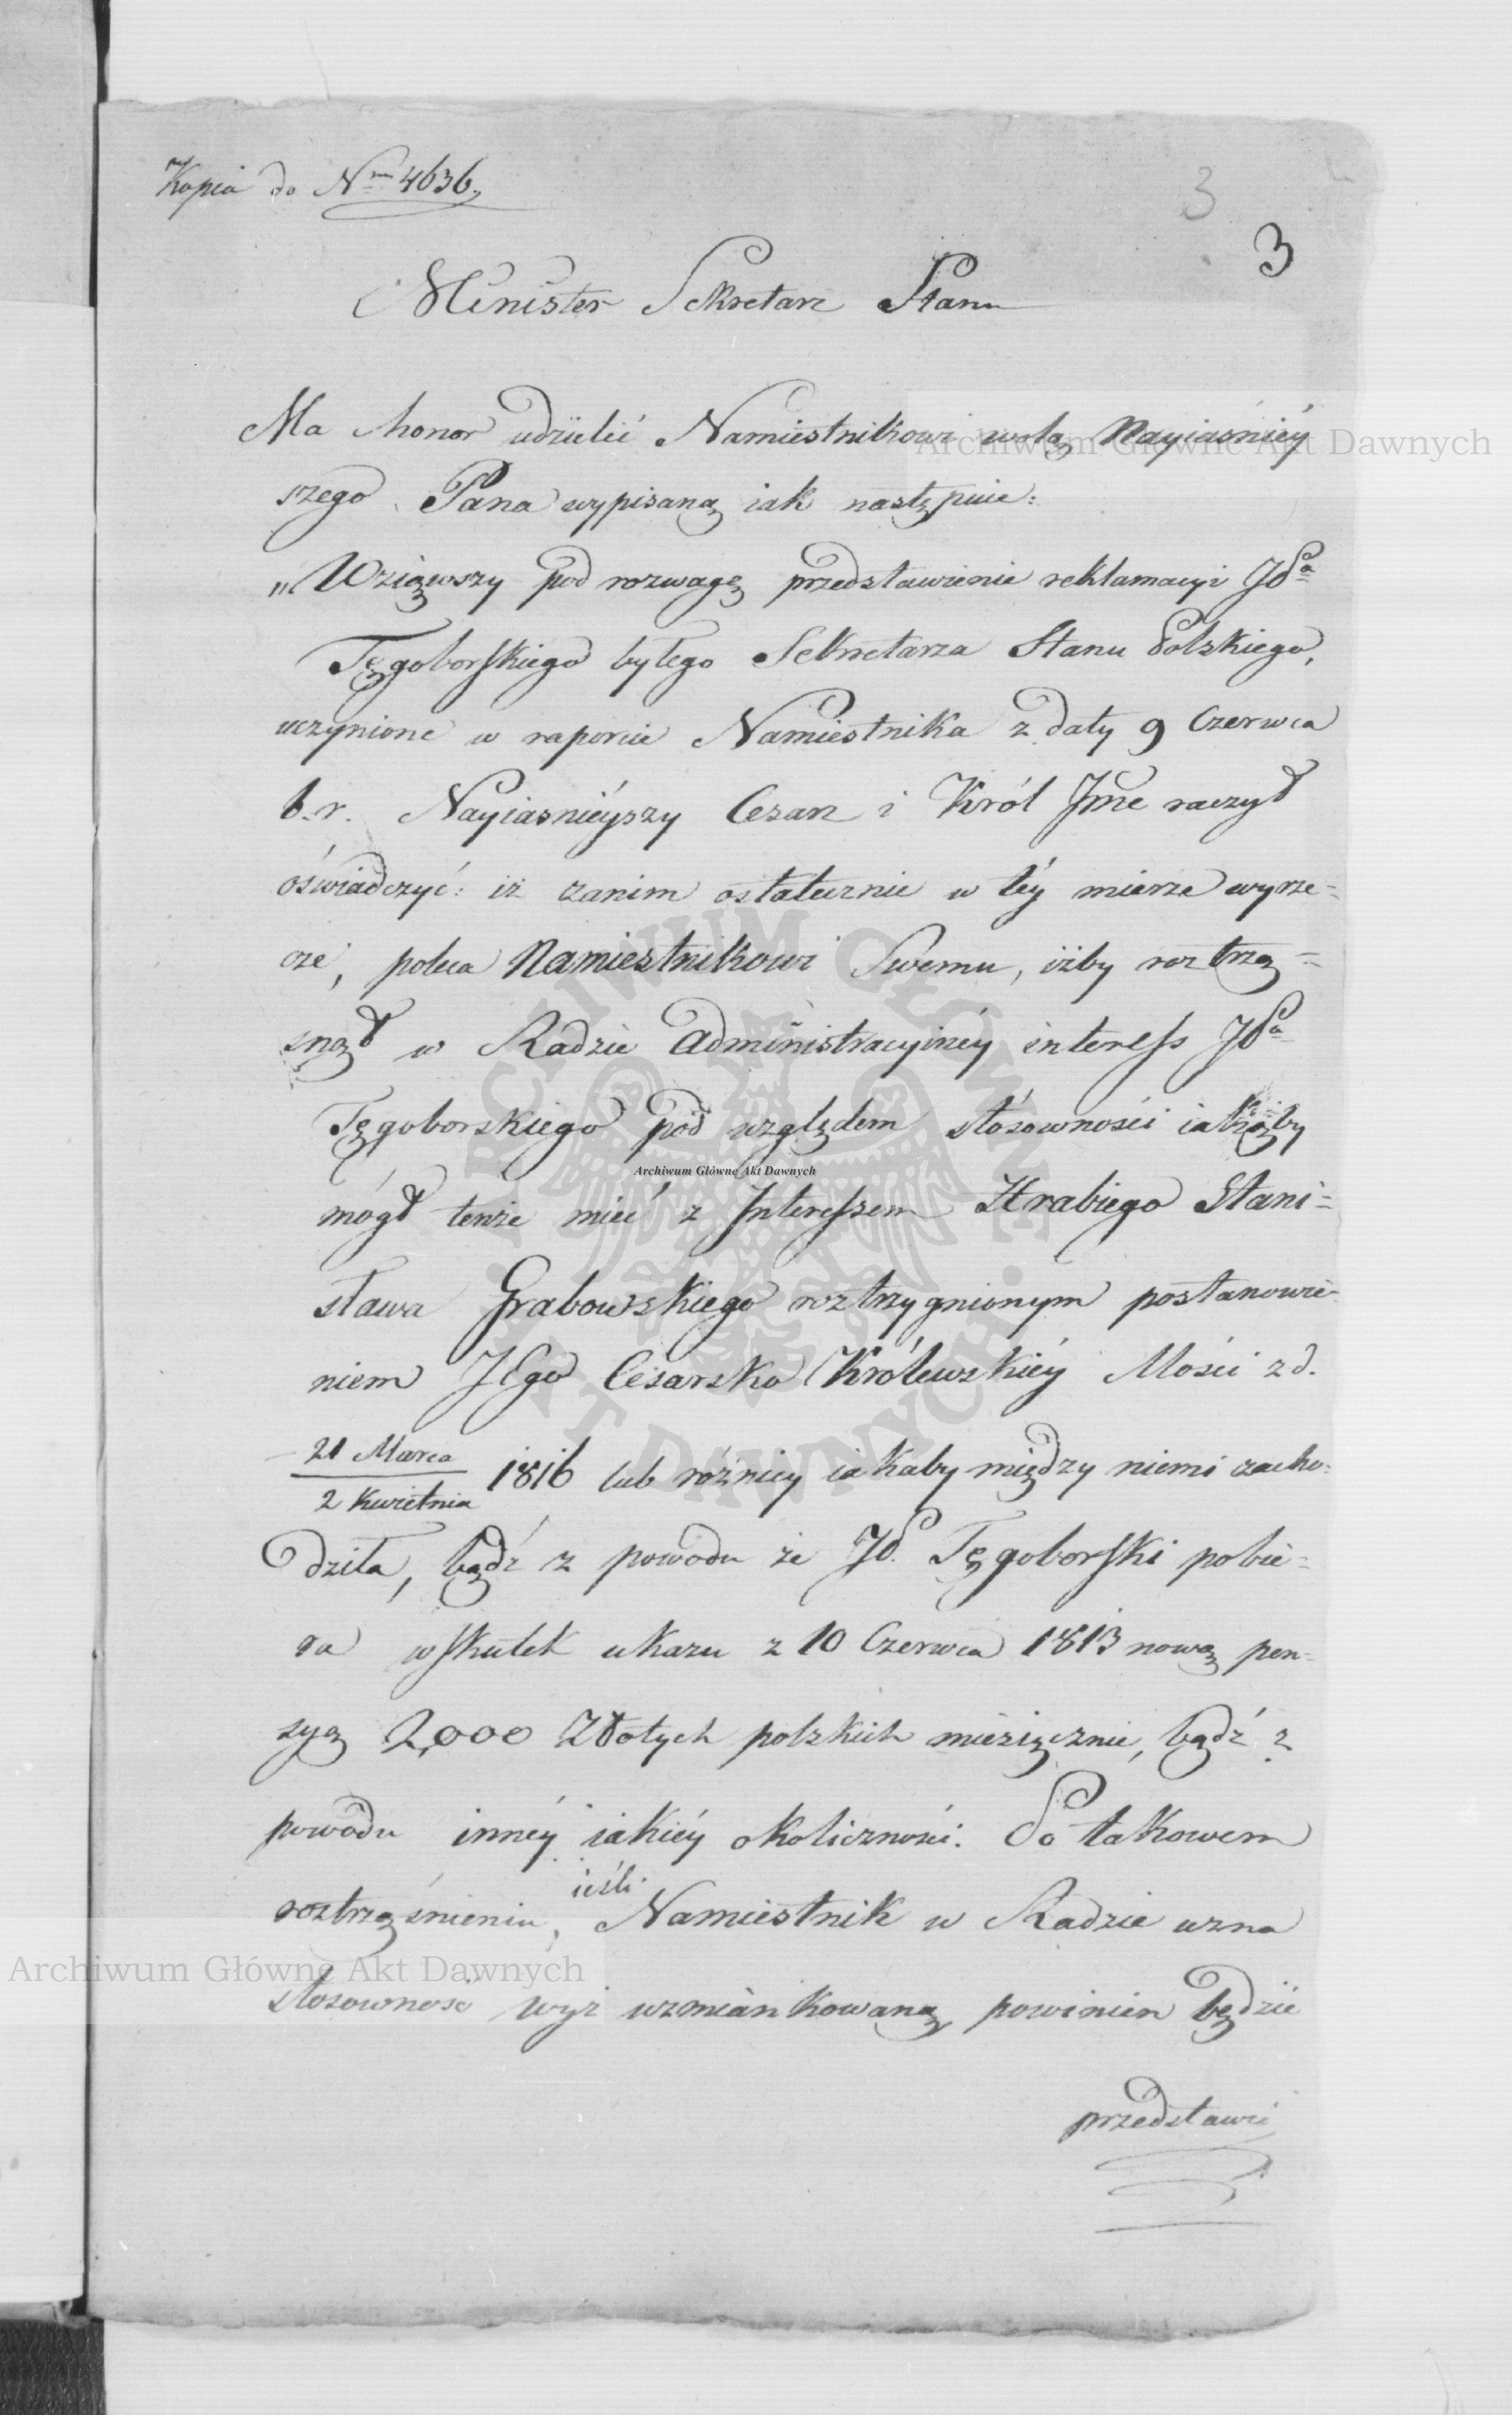 Kopia do Nru 4636,
3
3
Minister Sekretarz Stanu
Ma honor udzielić Namiestnikowi wolą Nayiaśniéy
szego Pana wypisaną iak następuie:
„Wziąwszy pod rozwagę przedstawienie reklamacyi JPa
Tęgoborskiego byłego Sekretarza Stanu Polskiego,
uczynione w raporcie Namiestnika z daty 9 Czerwca
b. r. Nayiasnieyszy Cesarz i Król Jmć raczył
oświadczyć: iż zanim ostatecznie w téy mierze wyrze=
cze, poleca Namiestnikowi Swemu, iżby roztrzą=
snął w Radzie Administracyinéy interess JPa
Tęgoborskiego pod względem stósowności iakąby
mógł tenże mieć z Interessem Hrabiego Stani=
sława Grabowskiego roztrzygnionym postanowie
niem JEgo Cesarsko Królewskiéy Mości z d.
21 Marca
2 Kwietnia 1816 lub różnicy iakaby między niemi zacho=
dziła, bądź z powodu że JP. Tęgoborski pobie=
ra wskutek ukazu z 10 Czerwca 1813 nową pen=
syą 2,000 Złotych polskich miesięcznie, bądź z
powodu innéy iakiéy okoliczności. Po takowem
roztrząśnieniu, ieśli Namiestnik w Radzie uzna
stosowność wyż wzmiankowaną powinien będzie
przedstawi
Archiwum Główne Akt Dawnych
Archiwum Główne Akt Dawnych
Archiwum Główne Akt Dawnych
ARCHIWUM GŁÓWNE AKT DAWNYCH